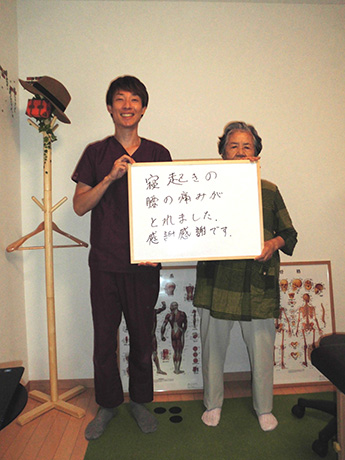 寝起きの
腰の痛みが
とれました.
感謝感謝です.